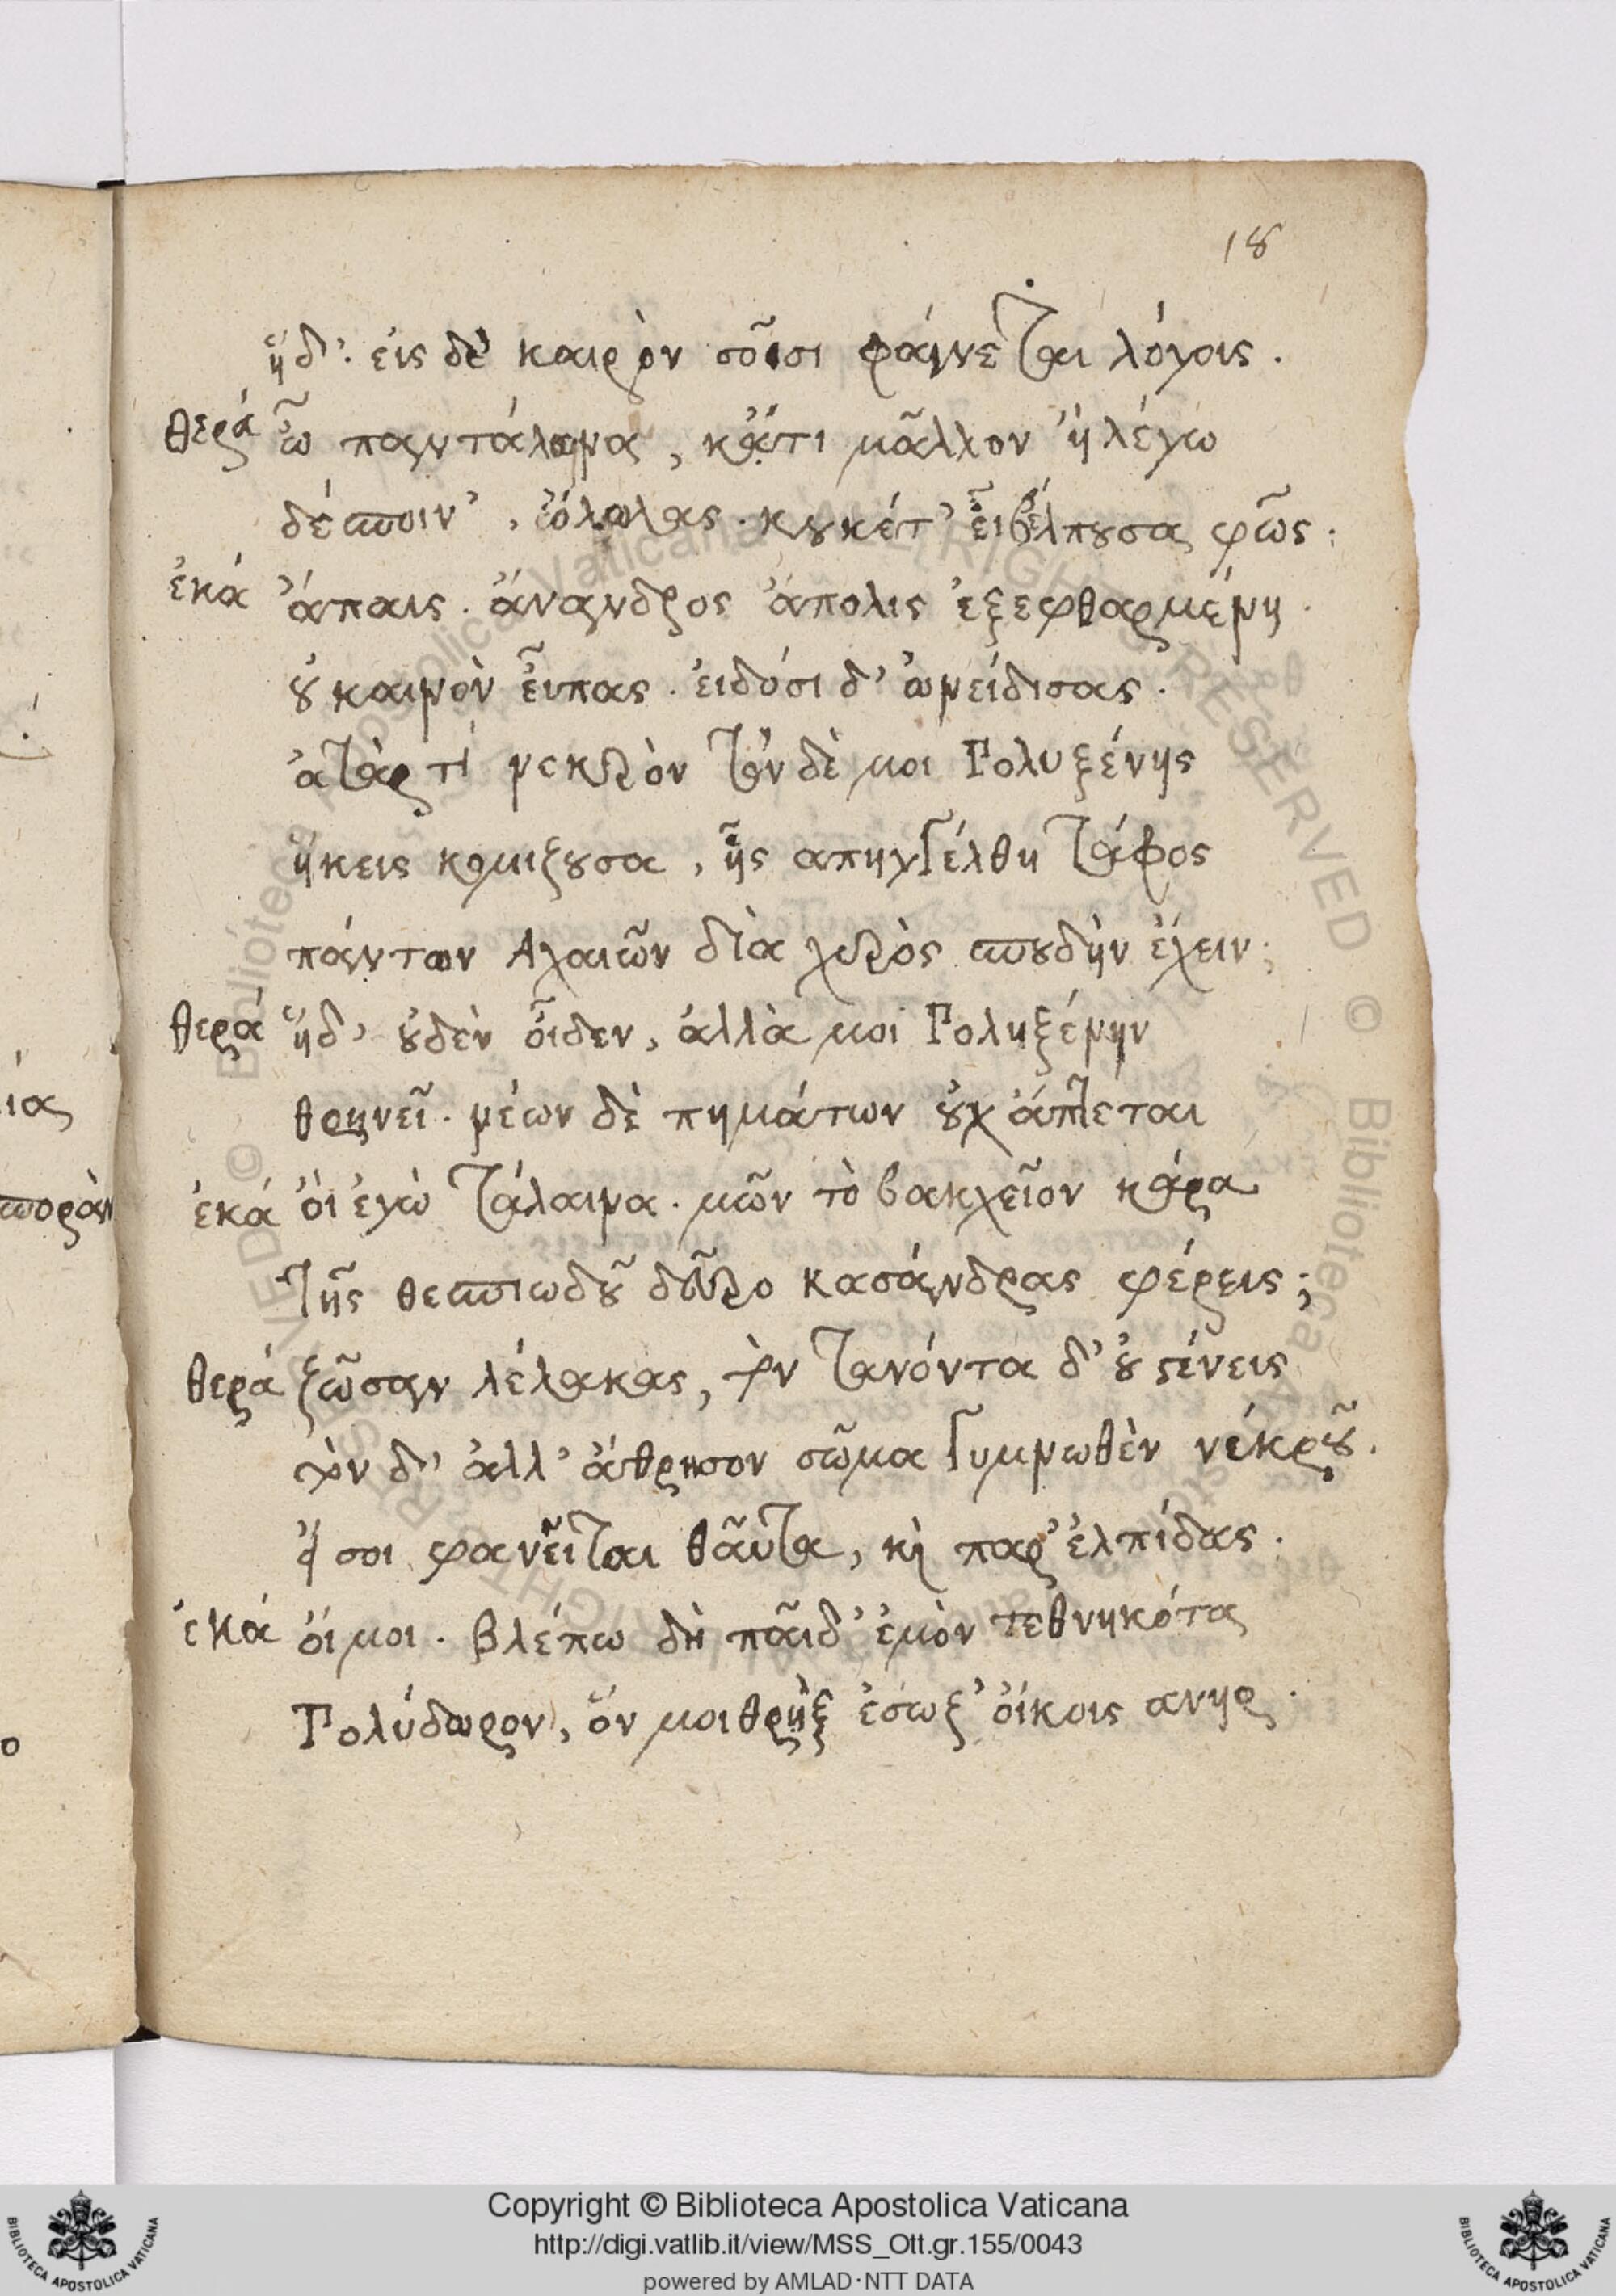 18
ἥδ'· εἰς δὲ καιρὸν σοῖσι φαίνεται λόγοις.
θερά ὦ παντάλαινα, κἄτι μᾶλλον ἢ λέγω
δέσποιν', ὄλωλας. κοὐκέτ' εἶ βλέπουσα φῶς.
ἑκά ἄπαις. ἄνανδρος ἄπολις ἐξεφθαρμένη.
οὐ καινὸν εἶπας. εἰδόσι δ' ὠνείδισας.
ἀτὰρ τί νεκρὸν τὸν δέ μοι Πολυξένης
ἥκεις κομίζουσα, ἧς απηγγέλθη τάφος
πάντων Αχαιῶν διὰ χερὸς σπουδὴν ἔχειν;
θερά ἥδ' οὐδὲν οἶδεν, ἀλλά μοι Πολυξένην
θρηνεῖ. νέων δὲ πημάτων οὐχ ἅπτεται
ἑκά οἲ ἐγὼ τάλαινα. μῶν τὸ βακχεῖον κάρα
τῆς θεσπιωδοῦ δεῦρο κασάνδρας φέρεις;
θερά ζῶσαν λέλακας, τὸν τανόντα δ' οὐ στένεις
τὸν δ' ἀλλ' ἄθρησον σῶμα γυμνωθὲν νεκροῦ.
εἴ σοι φανεῖται θαῦτα, καὶ παρ' ἐλπίδας.
ἑκά οἴμοι. βλέπω δὴ παῖδ' ἐμὸν τεθνηκότα
Πολύδωρον, ὅν μοι θρῂξ ἔσωζ' οἴκοις ανηρ.
Copyright © Biblioteca Apostolica Vaticana
http://digi.vatlib.it/view/MSS_Ott.gr.155/0043
powered by AMLAD·NTT DATA